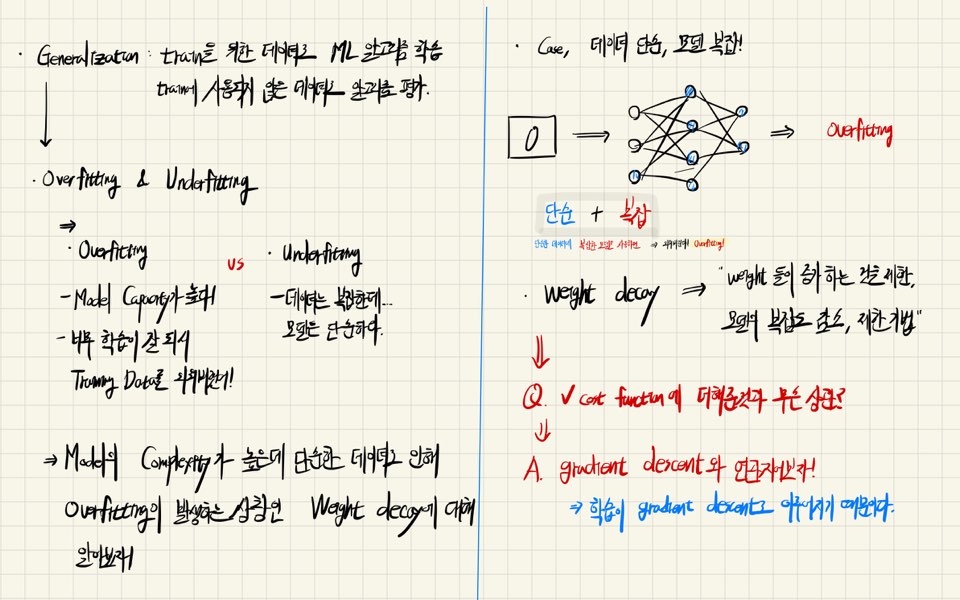 · Generalization : train을 위한 데이터로 ML 알고리즘 학습
train에 사용되지 않은 데이터로 알고리즘 평가.
· Overfitting & Underfitting
⇒
· Overfitting
vs
· Underfitting
- Model Capacity가 높다!
- 너무 학습이 잘 되서
Training Data를 외워버렸다!
- 데이터는 복잡한데...
모델은 단순하다.
⇒ Model의 Complexity가 높은데 단순한 데이터로 인해
Overfitting이 발생하는 상황인 Weight decay에 대해
알아보자!
· Case, 데이터 단순, 모델 복잡!
0 ⇒ ⇒ Overfitting
단순 + 복잡
단순한 데이터에 복잡한 모델을 사용하면 ⇒ 외워버린다! Overfitting!
· Weight decay ⇒ "weight 들이 증가 하는 것을 제한,
모델의 복잡도 감소, 제한 기법"
Q. ✓ cost function에 더해준것과 무슨 상관?
A. gradient descent와 연관지어보자!
⇒ 학습이 gradient descent로 이루어지기 때문이다.